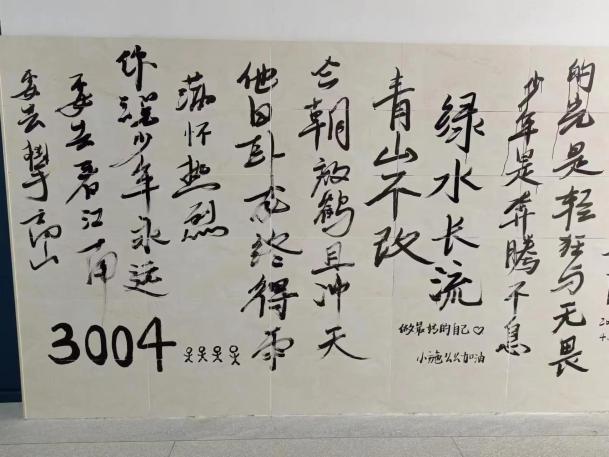 的先是轻狂与无畏
少年是奔腾不息
绿水长流
青山不改
今朝放鹤且冲天
他日卧龙终得雨
满怀热烈
你端少年永远
要去看江南
要去攀高山
做最好的自己♡
小施公公加油
3004